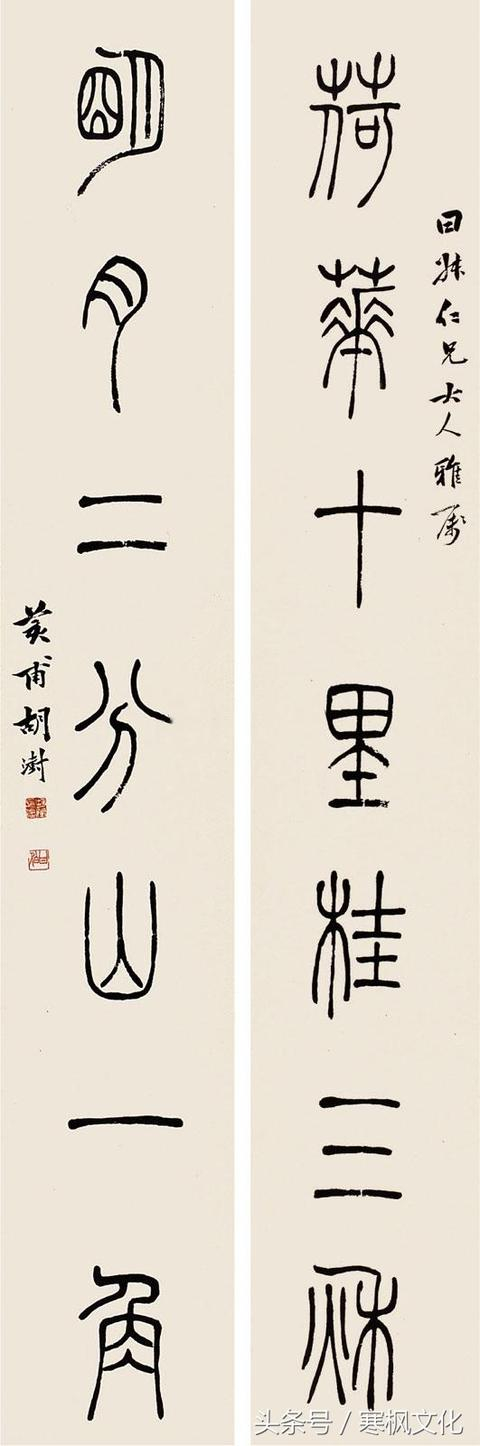 仁兄大人雅属
荷華十里桂三秋
朙月二分山一角
荄甫胡澍
头条号 / 寒枫文化